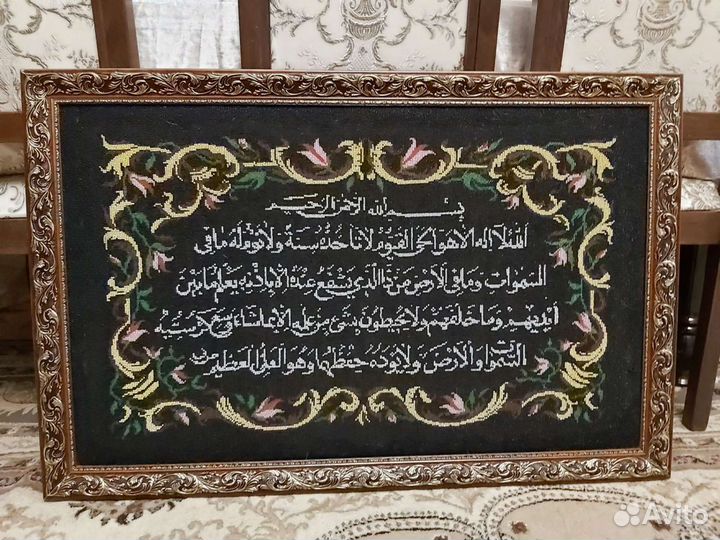 بسم الله الرحمن الرحيم
الله لا اله الا هو الحي القيوم لا تاخذه سنة ولا نوم له ما في
السموات وما في الارض من ذا الذي يشفع عنده الا باذنه يعلم ما بين
ايديهم وما خلفهم ولا يحيطون بشئ من علمه الا بما شاء وسع كرسيه
السموات والارض ولا يوده حفظهما وهو العلي العظيم
Avito